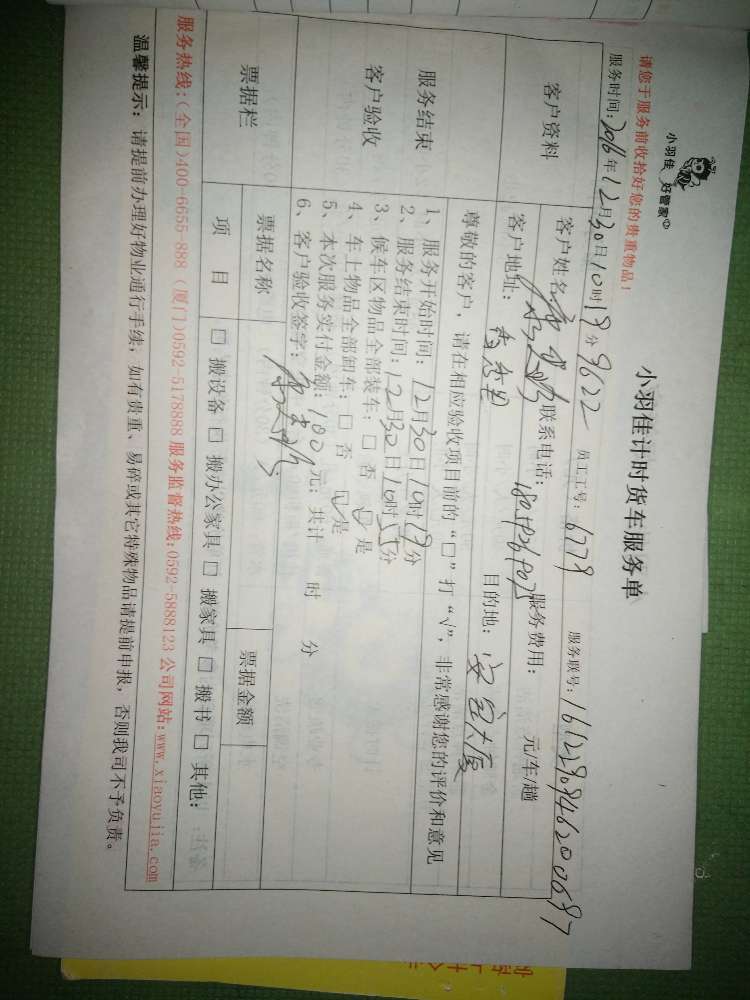 小羽佳 好管家
小羽佳计时货车服务单
请您于服务前收拾好您的贵重物品！
服务时间：2016年12月30日10时19分 9622 员工工号：6779 服务联号：
客户资料 客户姓名 联系电话： 服务费用： 元/车/趟
客户地址： 目的地：安宝大厦
尊敬的客户，请在相应验收项目前的“□”打“√”，非常感谢您的评价和意见
服务结束
客户验收
1、服务开始时间：12月30日10时19分
2、服务结束时间：12月30日10时55分
3、候车区物品全部装车：□ 否 ☑ 是
4、车上物品全部卸车：□ 否 ☑ 是
5、本次服务实付金额：100元；共计 时 分
6、客户验收签字：
票据栏 票据名称 票据金额
项 目 □ 搬设备 □ 搬办公家具 □ 搬家具 □ 搬书 □ 其他：
服务热线：(全国)400-6655-888 (厦门)0592-5178888 服务监督热线：0592-5888123 公司网站：www.xiaoyujia.com
温馨提示：请提前办理好物业通行手续；如有贵重、易碎或其它特殊物品请提前申报，否则我司不予负责。